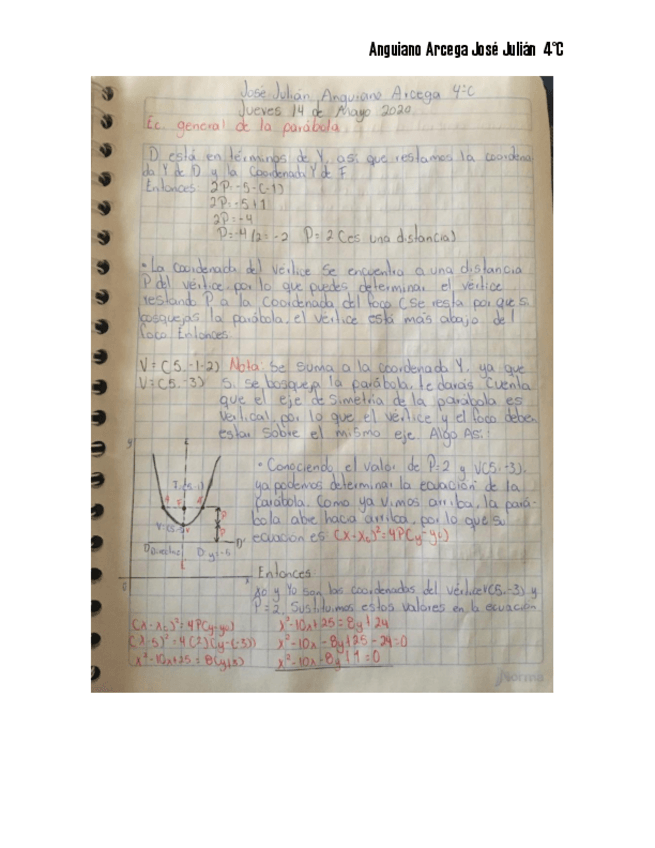 Anguiano Arcega José Julián 4°C
José Julián Anguiano Arcega 4°C
Jueves 14 de Mayo 2020
Ec. general de la parábola.
D está en términos de Y, así que restamos la coordena
da Y de D y la Coordenada Y de F
Entonces: 2P=-5-(-1)
2P=-5+1
2P=-4
P=-4/2=-2 P=2 (es una distancia)
• La coordenada del vértice se encuentra a una distancia
P del vértice, por lo que puedes determinar el vértice
restando P a la Coordenada del foco (se resta porque si
bosquejas la parábola, el vértice está más abajo del
foco. Entonces:
V=(5,-1-2) Nota: Se suma a la coordenada Y, ya que
V=(5,-3) Si se bosqueja la parábola, te darás cuenta
que el eje de simetría de la parábola es
vertical, por lo que el vértice y el foco deben
estar sobre el mismo eje. Algo Así:
• Conociendo el valor de P=2 y V(5,-3),
ya podemos determinar la ecuación de la
parábola. Como ya vimos arriba, la pará-
bola abre hacia arriba, por lo que su
ecuación es (x-x₀)²=4P(y-y₀)
y
F
P
P
V
D Directriz D: y=-5 D'
x
0
Entonces:
x₀ y y₀ son las coordenadas del vértice V(5,-3) y
P=2. Sustituimos estos valores en la ecuación
(x-x₀)²=4P(y-y₀)
(x-5)²=4(2)(y-(-3))
x²-10x+25=8(y+3)
x²-10x+25=8y+24
x²-10x-8y+25-24=0
x²-10x-8y+1=0
Norma